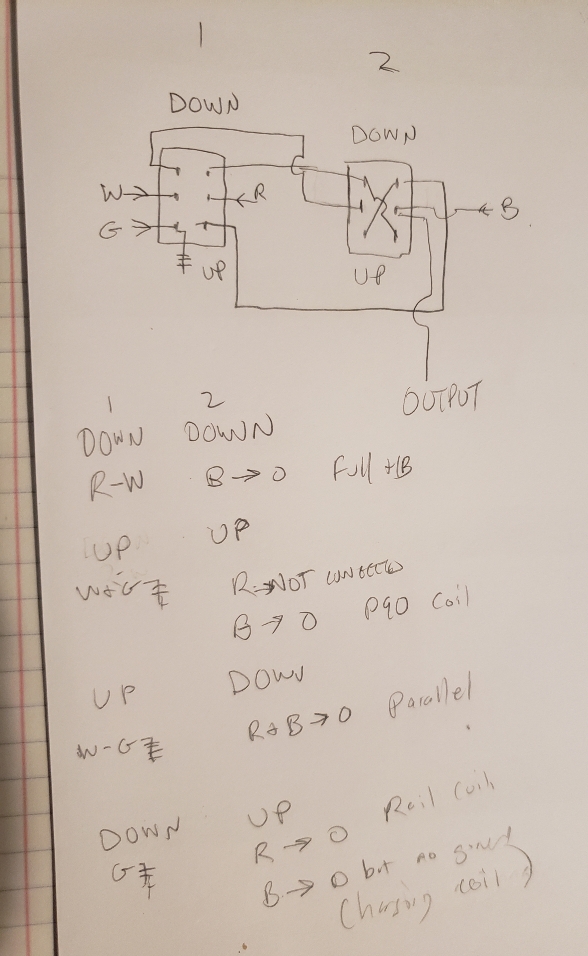 1
2
DOWN
DOWN
W R
G B
UP
UP
OUTPUT
1 2
DOWN DOWN
R-W B → O Full HB
UP UP
W+G R → NOT CONNECTED
B → O P90 Coil
UP DOWN
W-G R+B → O Parallel
DOWN UP
G R → O Rail Coil
B → O but no
coil)